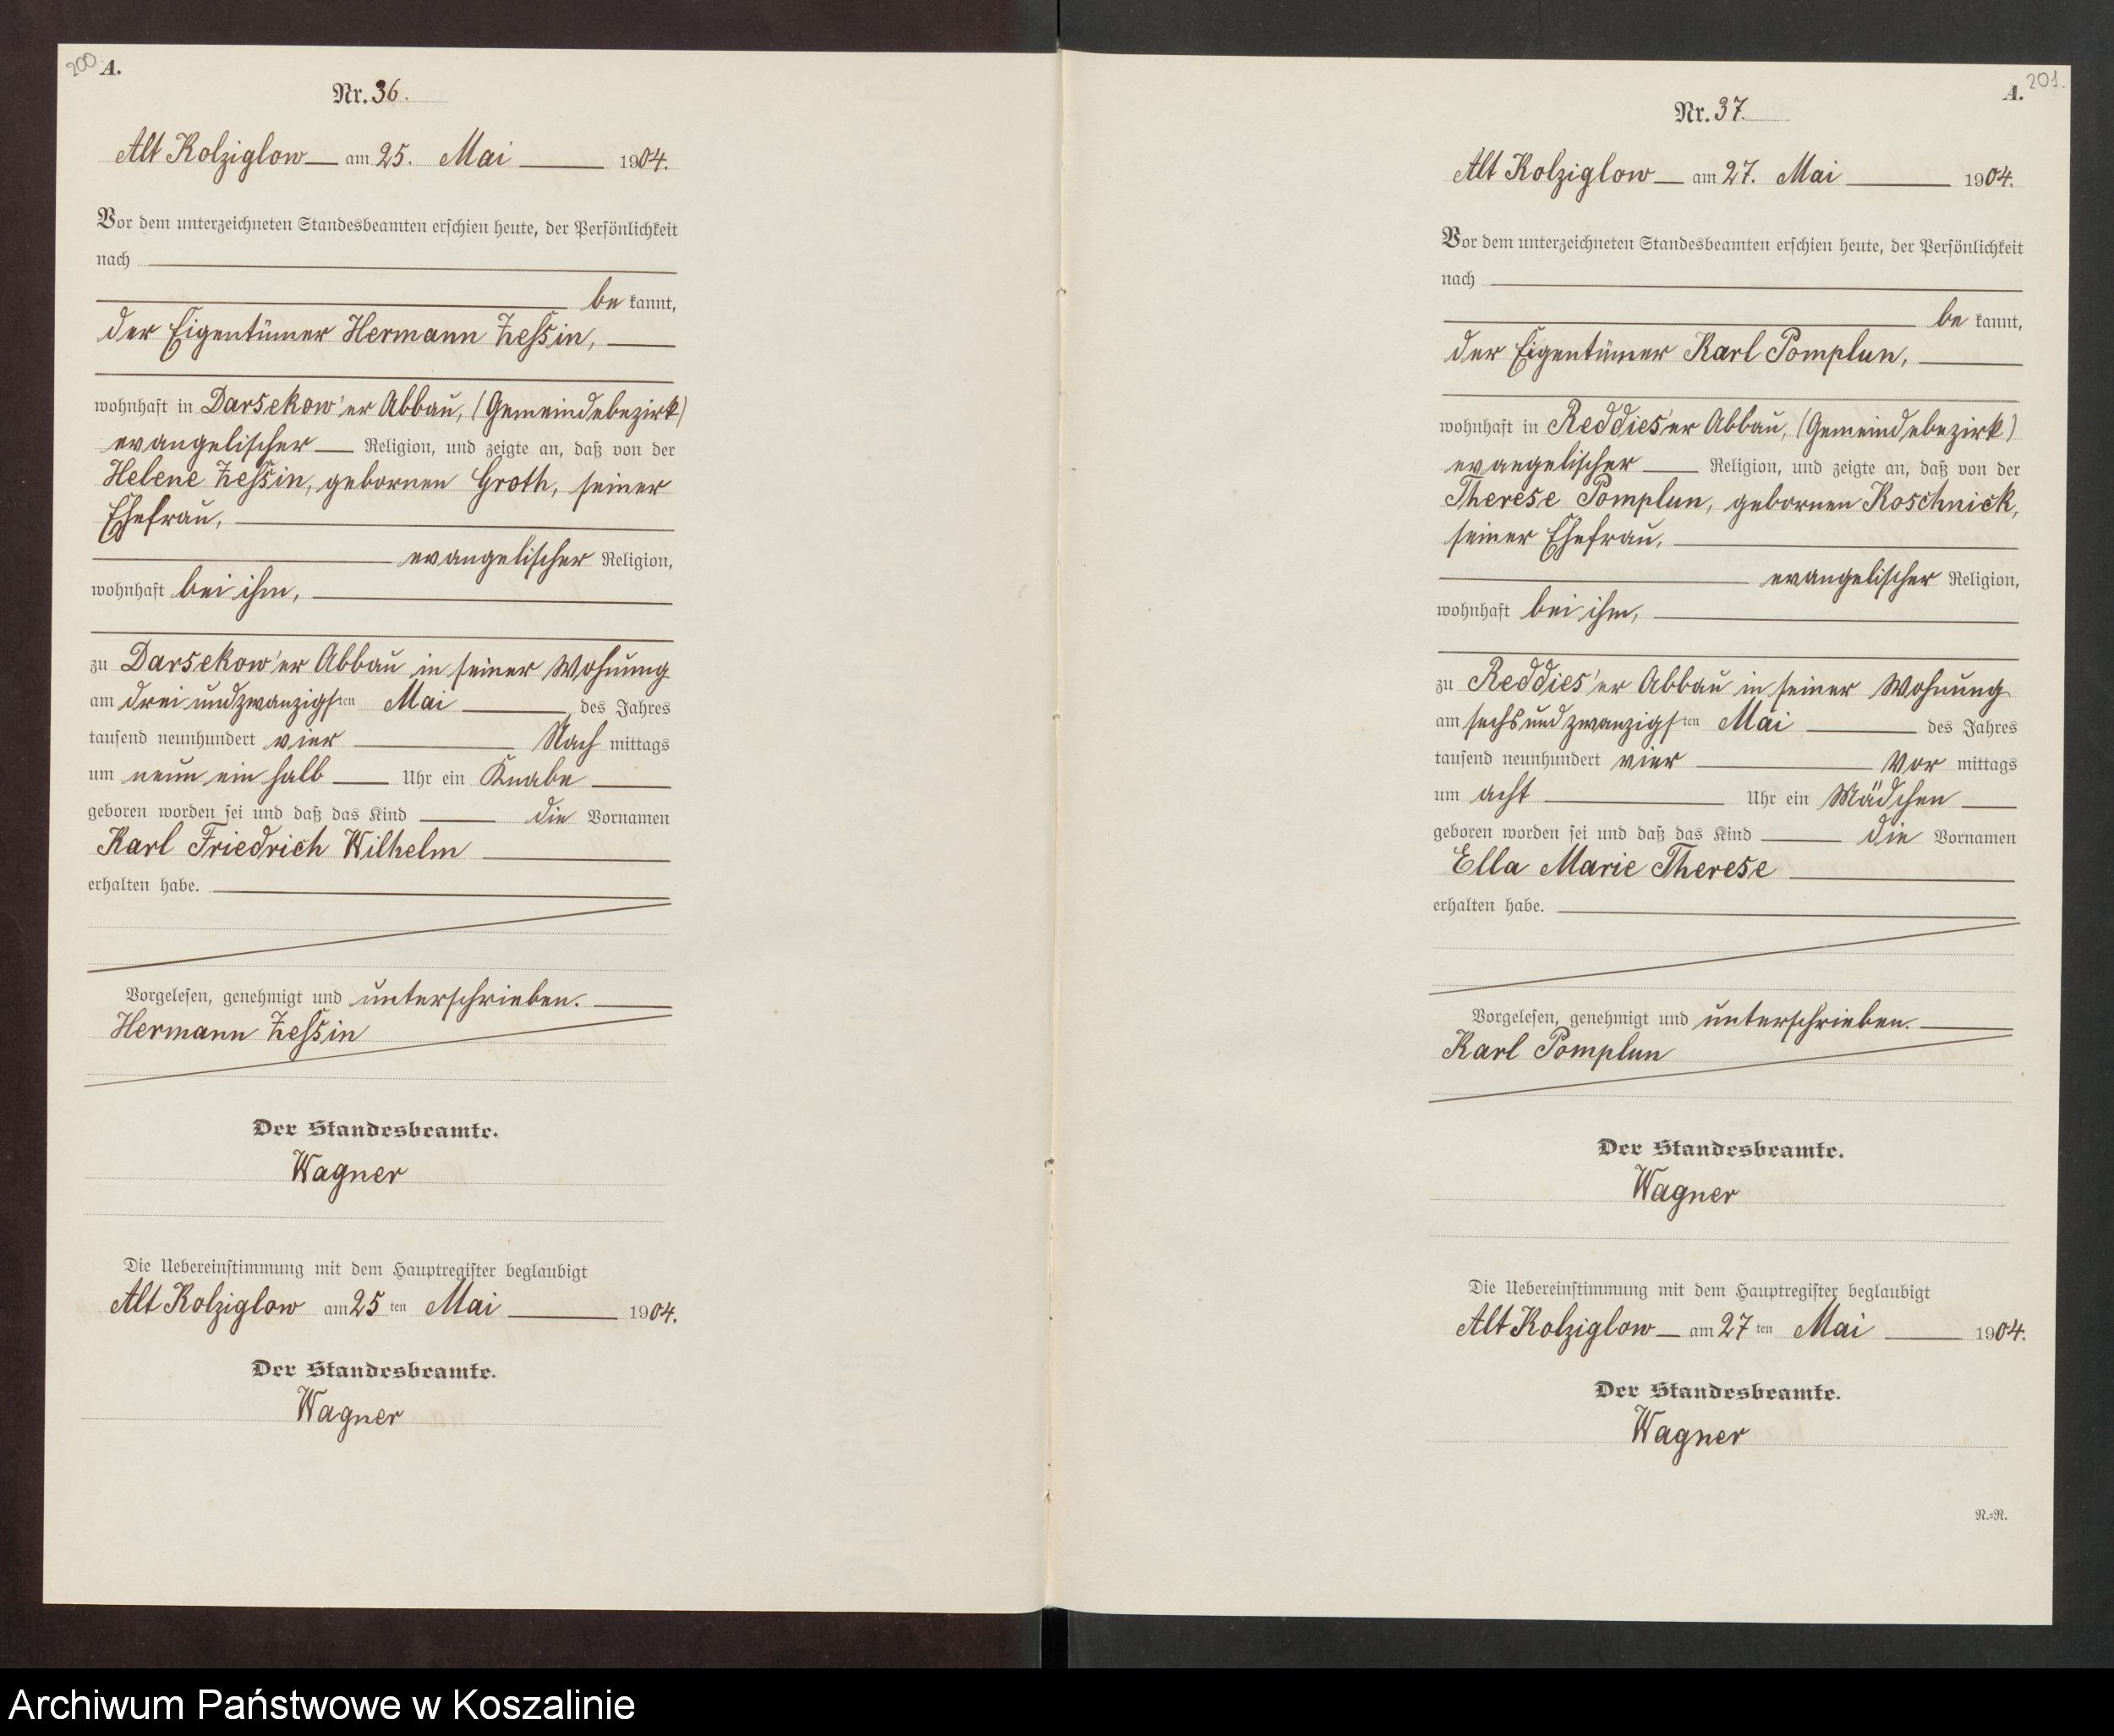 200 A.
Nr. 36.
Alt Kolziglow am 25. Mai 1904.
Vor dem unterzeichneten Standesbeamten erschien heute, der Persönlichkeit
nach
be kannt,
der Eigentümer Hermann Zessin,
wohnhaft in Darsekow'er Abbau, (Gemeindebezirk)
evangelischer Religion, und zeigte an, daß von der
Helene Zessin, gebornen Groth, seiner
Ehefrau,
evangelischer Religion,
wohnhaft bei ihm,
zu Darsekow'er Abbau in seiner Wohnung
am drei und zwanzigsten Mai des Jahres
tausend neunhundert vier Nach mittags
um neun ein halb Uhr ein Knabe
geboren worden sei und daß das Kind die Vornamen
Karl Friedrich Wilhelm
erhalten habe.
Vorgelesen, genehmigt und unterschrieben.
Hermann Zessin
Der Standesbeamte.
Wagner
Die Uebereinstimmung mit dem Hauptregister beglaubigt
Alt Kolziglow am 25 ten Mai 1904.
Der Standesbeamte.
Wagner
A. 201.
Nr. 37.
Alt Kolziglow am 27. Mai 1904.
Vor dem unterzeichneten Standesbeamten erschien heute, der Persönlichkeit
nach
be kannt,
der Eigentümer Karl Pomplun,
wohnhaft in Reddies'er Abbau, (Gemeindebezirk)
evangelischer Religion, und zeigte an, daß von der
Therese Pomplun, gebornen Koschnick,
seiner Ehefrau,
evangelischer Religion,
wohnhaft bei ihm,
zu Reddies'er Abbau in seiner Wohnung
am sechs und zwanzigsten Mai des Jahres
tausend neunhundert vier Vor mittags
um acht Uhr ein Mädchen
geboren worden sei und daß das Kind die Vornamen
Ella Marie Therese
erhalten habe.
Vorgelesen, genehmigt und unterschrieben.
Karl Pomplun
Der Standesbeamte.
Wagner
Die Uebereinstimmung mit dem Hauptregister beglaubigt
Alt Kolziglow am 27 ten Mai 1904.
Der Standesbeamte.
Wagner
N.=R.
Archiwum Państwowe w Koszalinie